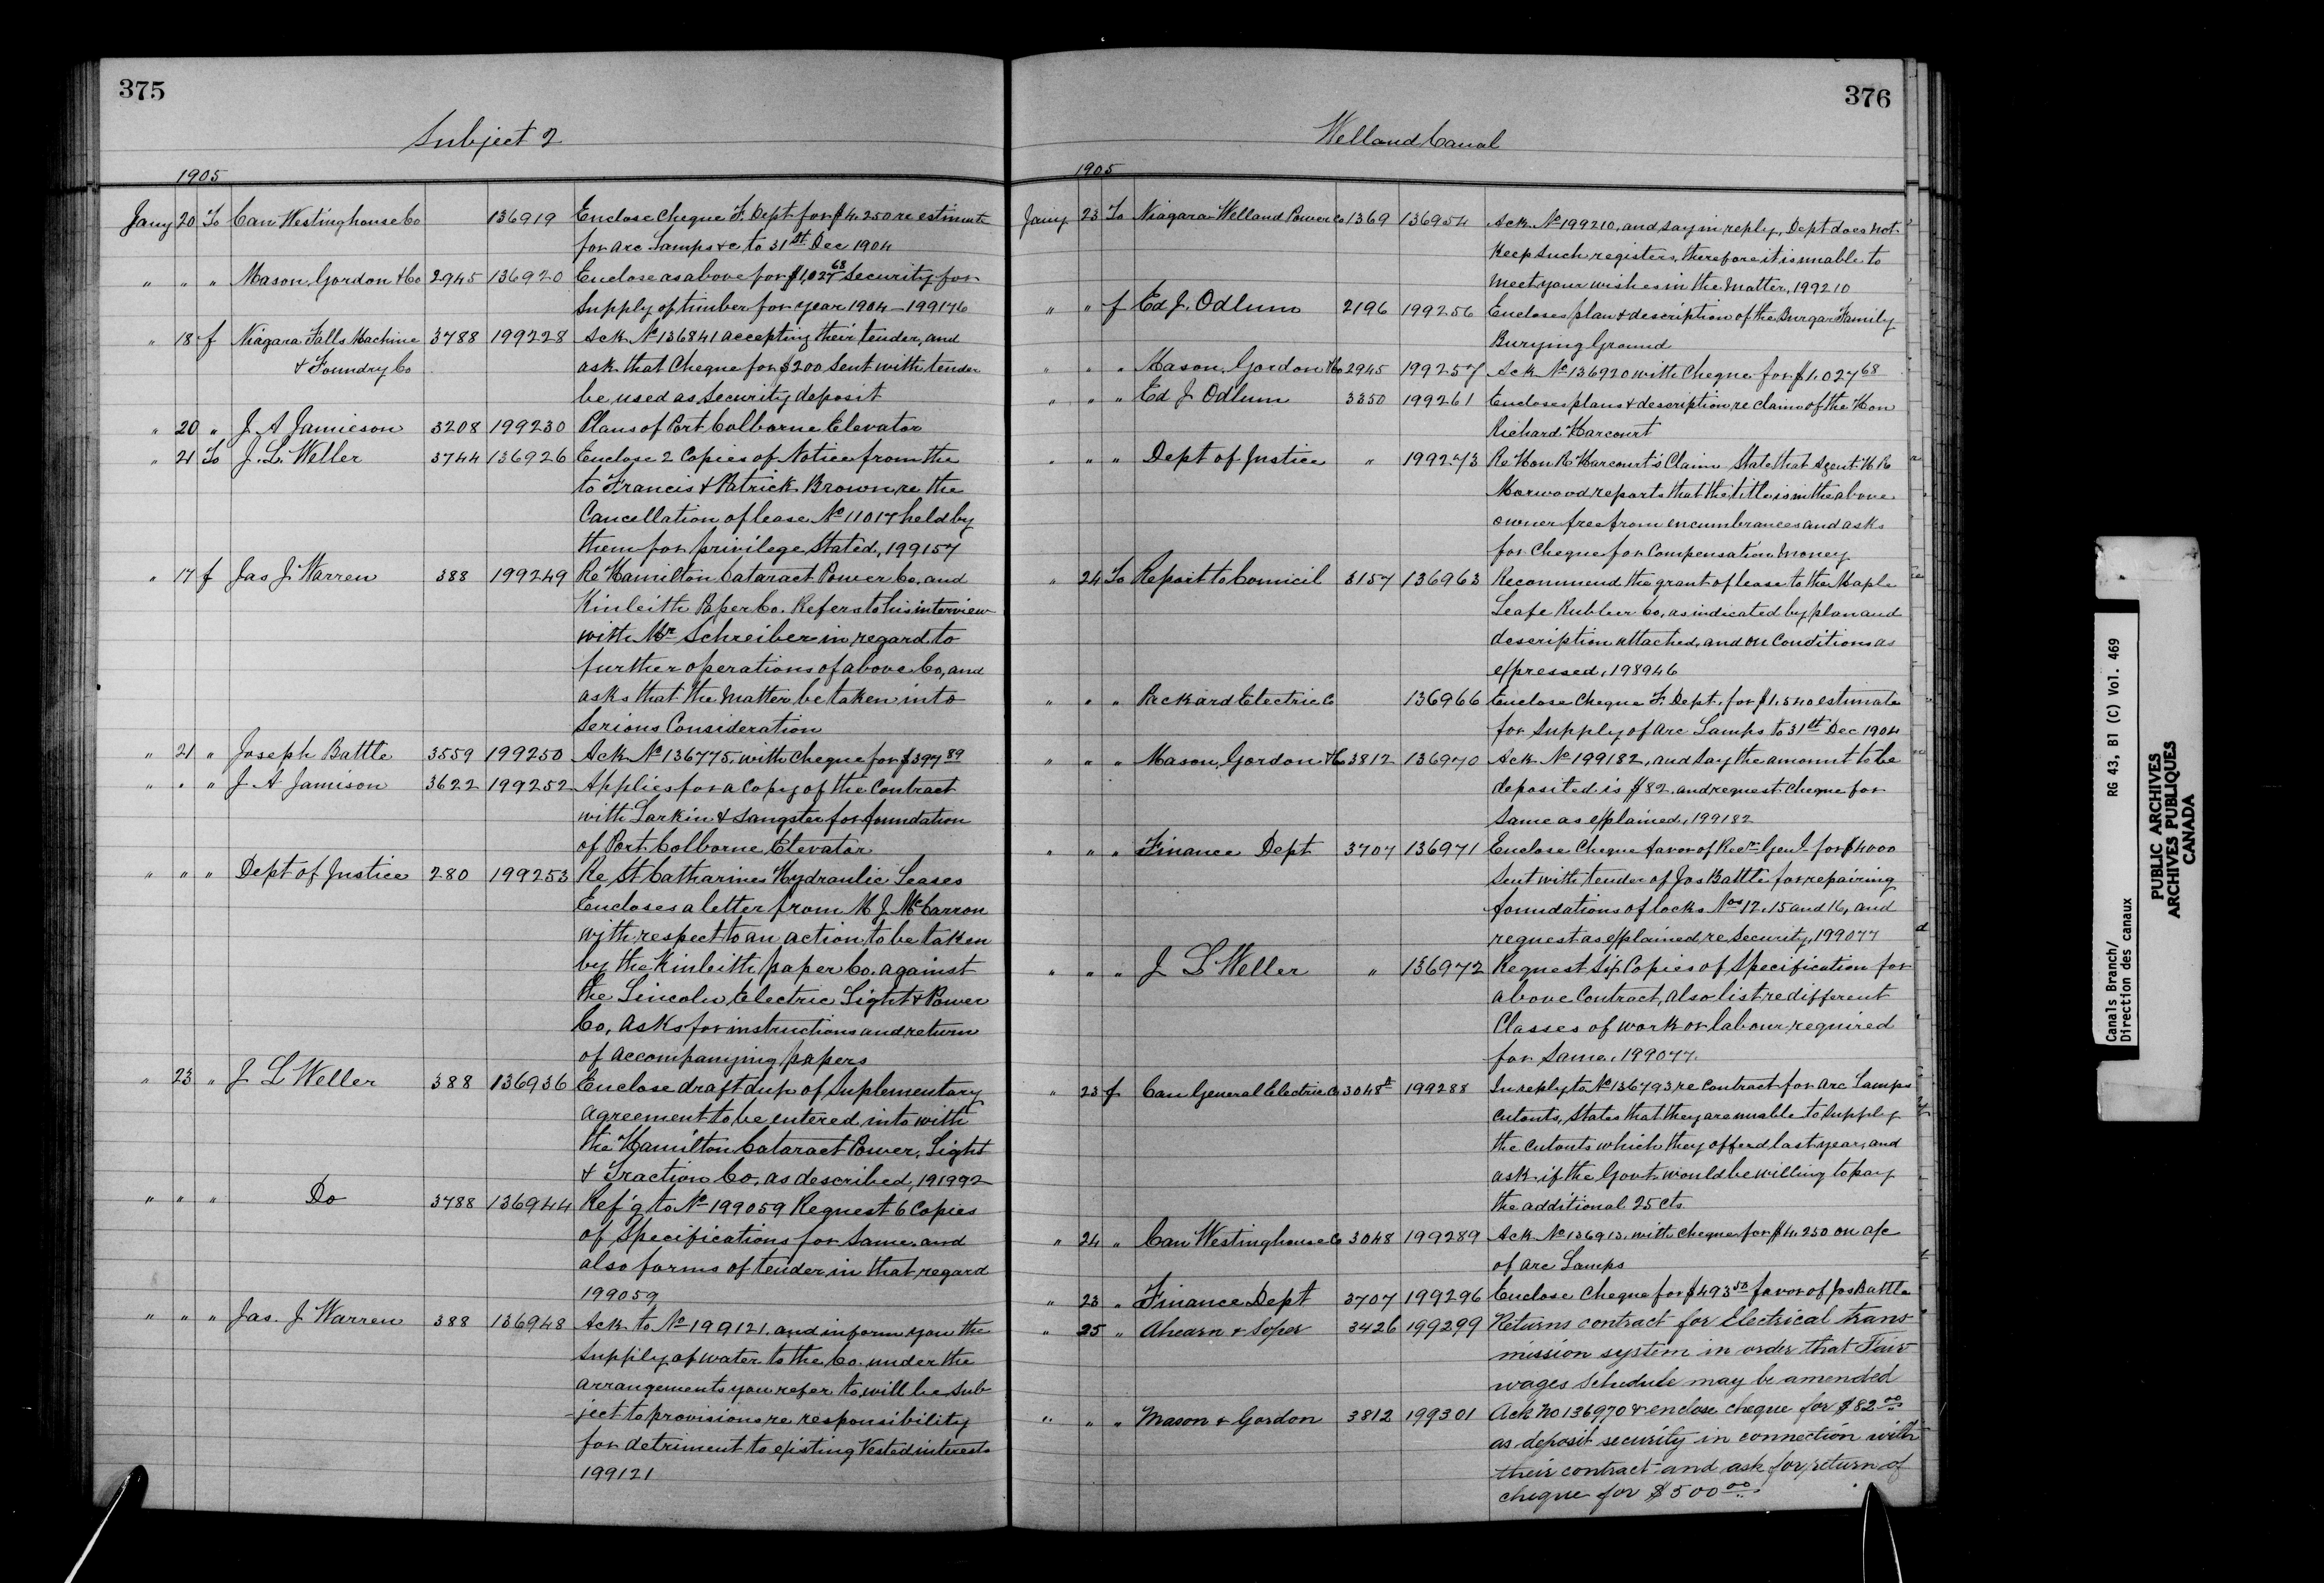 375
Subject 2
1905
Jany 20 To Can Westinghouse Co 136919 Enclose Cheque F. Dept. for $4,250 re estimate
for Arc Lamps &c to 31st Dec 1904
" " " Mason, Gordon & Co 2945 136920 Enclose as above for $1,027 68 Security for
Supply of timber for year 1904 - 199176
" 18 f Niagara Falls Machine 3788 199228 Ack No 136841 accepting their tender, and
& Foundry Co ask that Cheque for $200 sent with tender
be used as Security deposit
" 20 " J. A Jamieson 3208 199230 Plans of Port Colborne Elevator
" 21 To J. L. Weller 3744 136926 Enclose 2 Copies of Notice from the
to Francis & Patrick Brown, re the
Cancellation of lease No 11017 held by
them for privilege stated, 199157
" 17 f Jas J. Warren 388 199249 Re Hamilton Cataract Power Co, and
Kinleith Paper Co. Refers to his interview
with Mr Schreiber in regard to
further operations of above Co, and
asks that the matter be taken into
Serious Consideration
" 21 " Joseph Battle 3559 199250 Ack No 136775, with Cheque for $397 89
" " " J. A Jamison 3622 199252 Applies for a Copy of the Contract
with Larkin & Sangster for foundation
of Port Colborne Elevator
" " " Dept of Justice 280 199253 Re St Catharines Hydraulic Leases
Encloses a letter from M J. McCarron
with respect to an action to be taken
by the Kinleith paper Co. against
the Lincoln Electric Light & Power
Co, asks for instructions and return
of accompanying papers
" 23 " J L Weller 388 136936 Enclose draft dup of Suplementary
agreement to be entered into with
the Hamilton Cataract Power, Light
& Traction Co, as described, 191992
" " " Do 3788 136944 Ref'g to No 199059 Request 6 Copies
of Specifications for Same, and
also forms of tender in that regard
199059
" " " Jas. J Warren 388 136948 Ack to No 199121, and inform you the
Supply of water to the Co. under the
arrangements you refer to, will be sub
-ject to provisions re responsibility
for detriment to existing Vested interests
199121
376
Welland Canal
1905
Jany 23 To Niagara Welland Power Co 1369 136954 Ack No 199210, and say in reply, Dept does not
Keep such registers, therefore it is unable to
meet your wishes in the matter, 199210
" " f Ed J. Odlum 2196 199256 Encloses plan & description of the Burgar Family
Burying Ground
" " " Mason, Gordon & Co 2945 199257 Ack No 136920 with Cheque for $1,027 68
" " " Ed J Odlum 3350 199261 Encloses plans & description re claim of the Hon
Richard Harcourt
" " " Dept of Justice " 199273 Re Hon R Harcourt's Claim State that Agent
Morwood reports that the title is in the above
owner free from encumbrances and asks
for Cheque for Compensation Money
" 24 To Report to Council 3157 136963 Recommend the grant of lease to the Maple
Leafe Rubber Co, as indicated by plan and
description attached, and on Conditions as
expressed, 198946
" " " Packard Electric Co 136966 Enclose Cheque F. Dept. for $1,540 estimate
for Supply of Arc Lamps to 31st Dec 1904
" " " Mason, Gordon & Co 3812 136970 Ack No 199182, and say the amount to be
deposited is $82, and request Cheque for
Same as explained, 199182
" " " Finance Dept 3707 136971 Enclose Cheque favor of Recr Genl for $4000
Sent with tender of Jos Battle for repairing
foundations of locks Nos 12, 15 and 16, and
request as explained re Security, 199077
" " " J L Weller " 136972 Request Six Copies of Specification for
above Contract, also list re different
Classes of work or labour required
for Same, 199077.
" 23 f Can General Electric Co 3048 199288 In reply to No 136793 re contract for Arc Lamps
cutouts, States that they are unable to Supply
the cutouts which they offerd last year, and
ask if the Govt would be willing to pay
the additional 25 cts
" 24 " Can Westinghouse Co 3048 199289 Ack No 136913, with cheque for $4,250 on a/c
of Arc Lamps
" 23 " Finance Dept 3707 199296 Enclose Cheque for $493 50 favor of Jos Battle
" 25 " Ahearn & Soper 3426 199299 Returns contract for Electrical trans-
mission system in order that Fair
wages schedule may be amended
" " " Mason & Gordon 3812 199301 Ack No 136970 & enclose cheque for $82 00
as deposit security in connection with
their contract and ask for return of
cheque for $500 00
Canals Branch/ RG 43, B1 (C) Vol. 469
Direction des canaux
PUBLIC ARCHIVES
ARCHIVES PUBLIQUES
CANADA